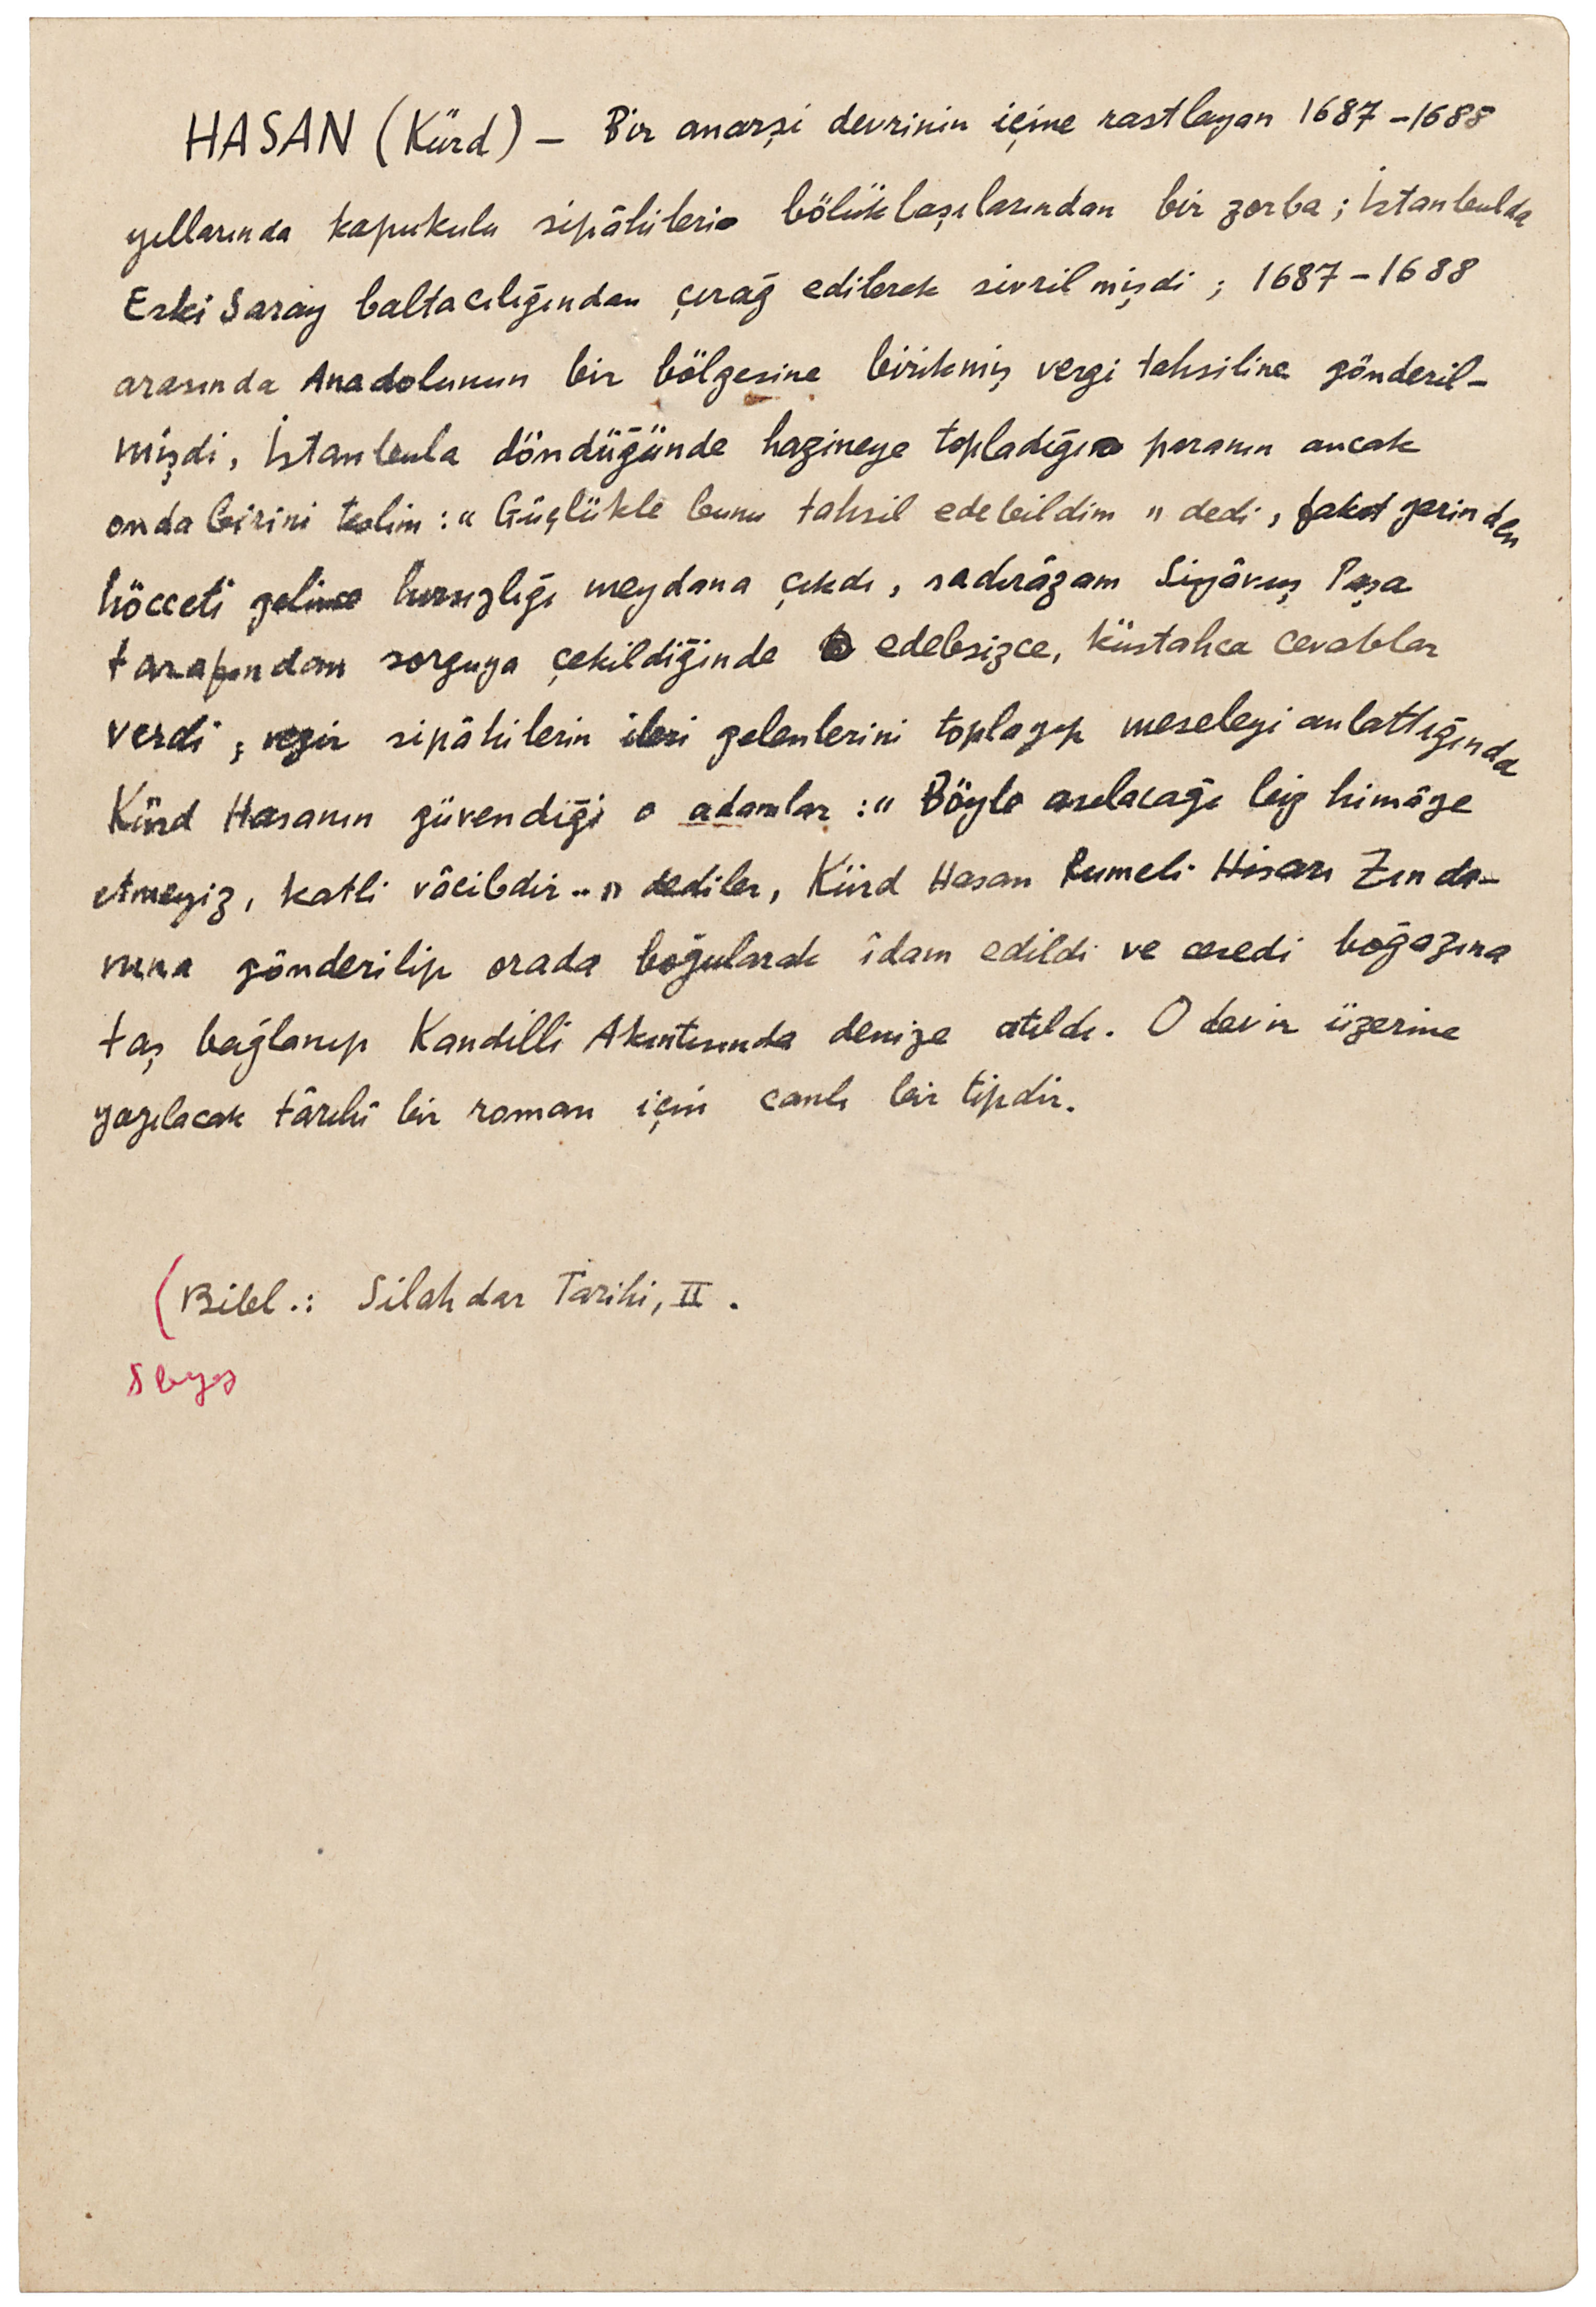 HASAN (Kürd) – Bir anarşi devrinin içine rastlayan 1687-1688
yıllarında kapukulu sipâhileri bölükbaşılarından bir zorba; İstanbulda
Eski Saray baltacılığından çırağ edilerek sivrilmişdi; 1687-1688
arasında Anadolunun bir bölgesine birikmiş vergi tahsiline gönderil-
mişdi, İstanbula döndüğünde hazineye topladığı paranın ancak
onda birini teslim: "Güçlükle bunu tahsil edebildim" dedi, fakat yerinden
hücceti gelince hırsızlığı meydana çıkdı, sadırâzam Siyâvuş Paşa
tarafından sorguya çekildiğinde edebsizce, küstahca cevablar
verdi, vezir sipâhilerin ileri gelenlerini toplayıp meseleyi anlattığında
Kürd Hasanın güvendiği o adamlar: "Böyle asılacağı biz himâye
etmeyiz, katli vâcibdir.." dediler, Kürd Hasan Rumeli Hisarı Zında-
nına gönderilip orada boğularak îdam edildi ve cesedi boğazına
taş bağlanıp Kandilli Akıntısında denize atıldı. O devir üzerine
yazılacak târihî bir roman için canlı bir tipdir.
(Bibl.: Silahdar Tarihi, II.